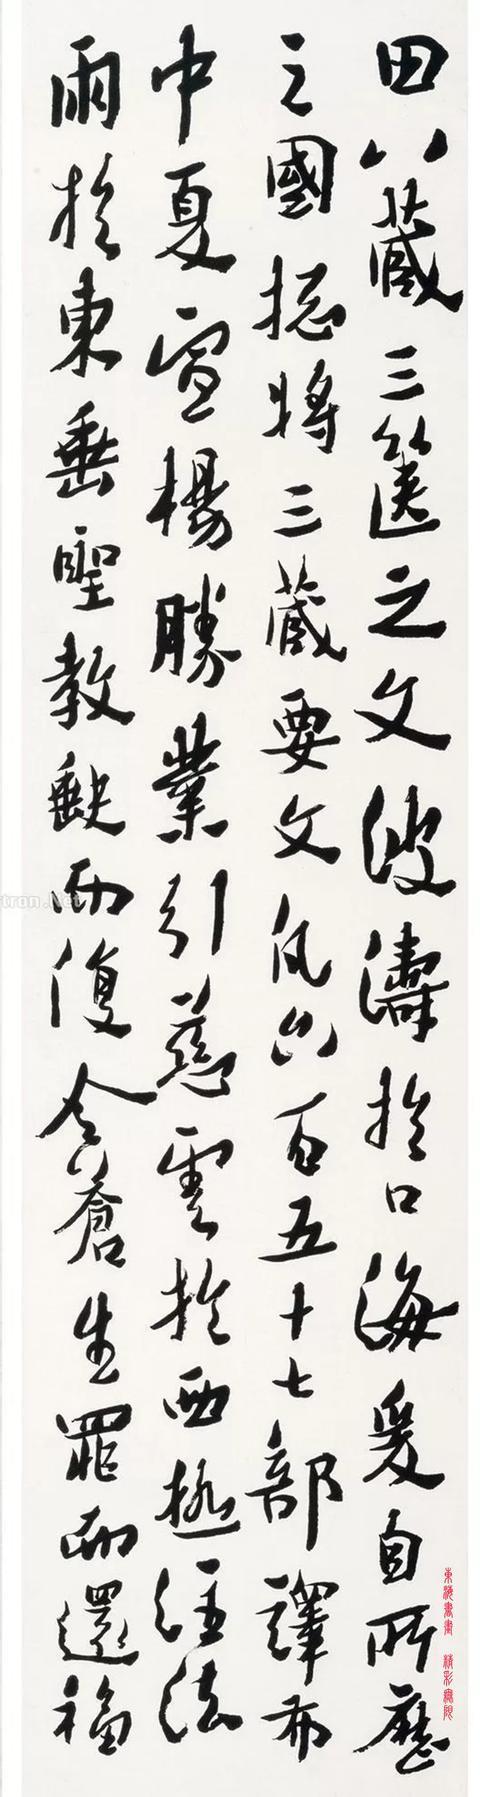 田八藏三篋之文波濤於口海爰自所歷
之國揔將三藏要文凡六百五十七部譯布
中夏宣楊勝業引慈雲於西極注法
雨於東垂聖教缺而復全蒼生罪而還福
tron.Net
東海書畫 精彩無限